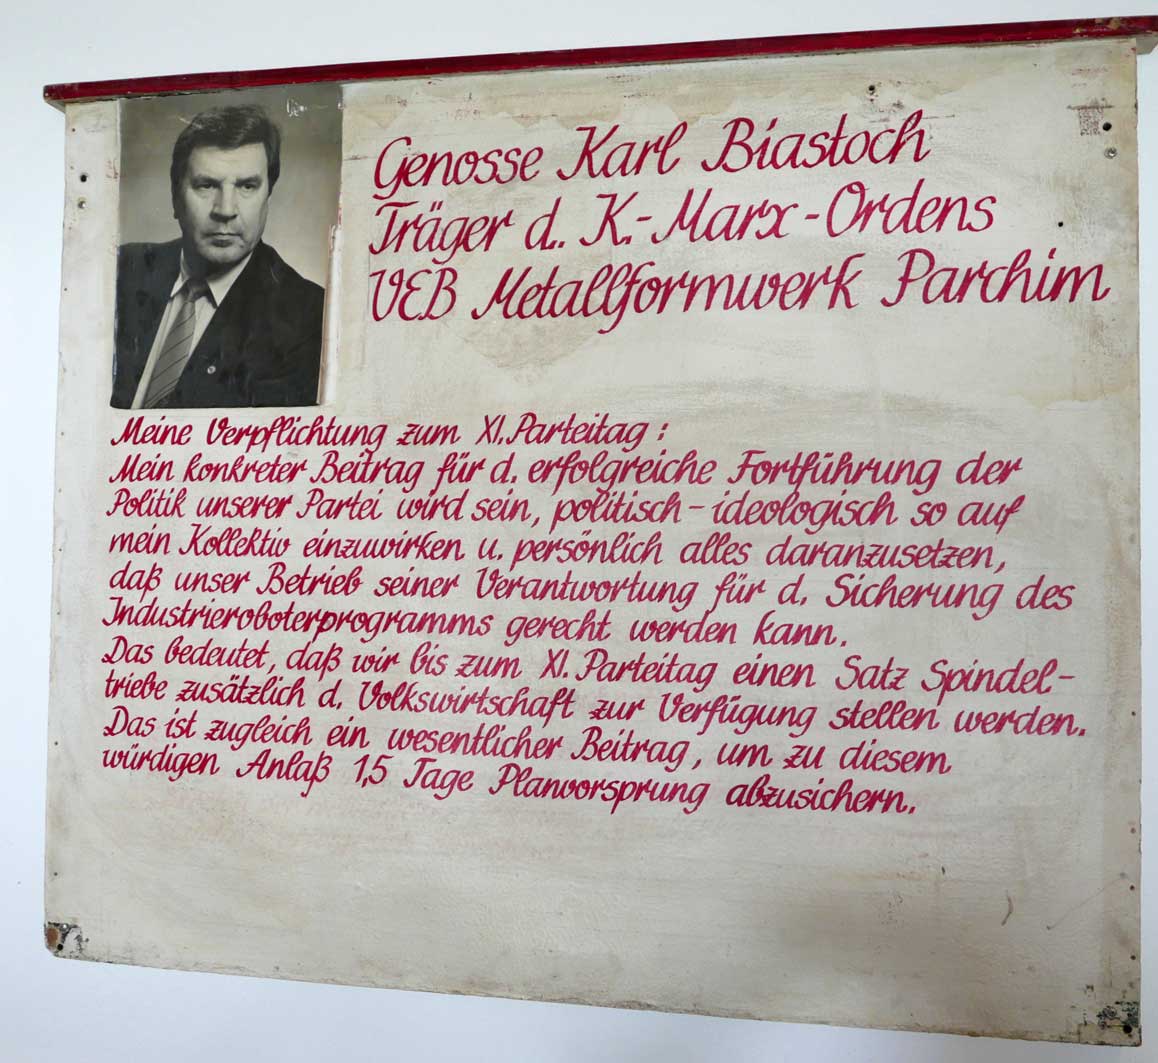 Genosse Karl Biastoch
Träger d. K.-Marx-Ordens
VEB Metallformwerk Parchim
Meine Verpflichtung zum XI. Parteitag:
Mein konkreter Beitrag für d. erfolgreiche Fortführung der
Politik unserer Partei wird sein, politisch-ideologisch so auf
mein Kollektiv einzuwirken u. persönlich alles daranzusetzen,
daß unser Betrieb seiner Verantwortung für d. Sicherung des
Industrieroboterprogramms gerecht werden kann.
Das bedeutet, daß wir bis zum XI. Parteitag einen Satz Spindel-
triebe zusätzlich d. Volkswirtschaft zur Verfügung stellen werden.
Das ist zugleich ein wesentlicher Beitrag, um zu diesem
würdigen Anlaß 1,5 Tage Planvorsprung abzusichern.